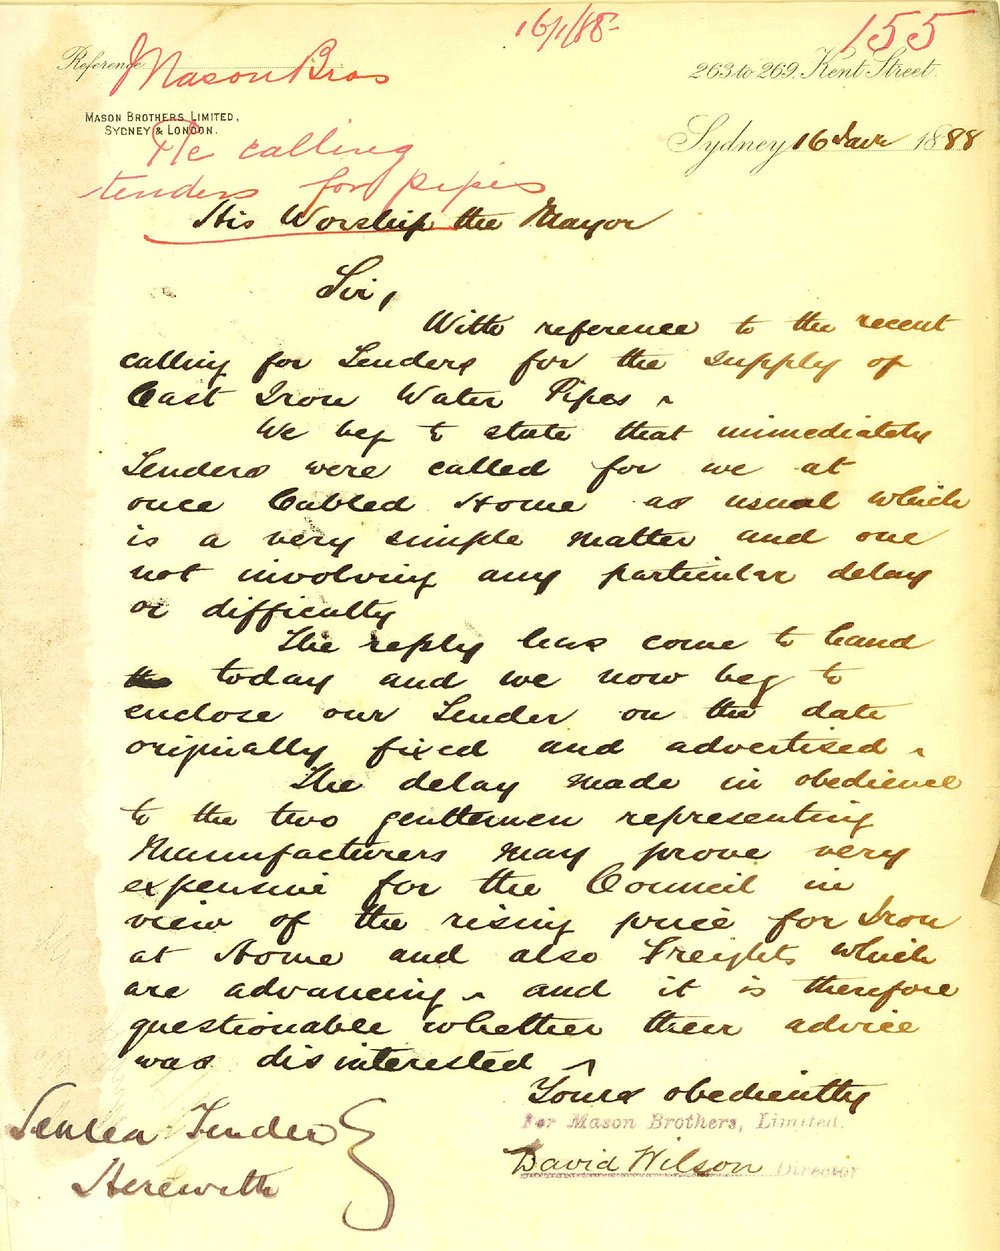 16/1/88
155
Reference
Mason Bros
263 to 269. Kent Street.
MASON BROTHERS LIMITED,
SYDNEY & LONDON.
Sydney 16 Jany 1888
Re calling
tenders for pipes
His Worship the Mayor
Sir,
With reference to the recent
calling for Tenders for the supply of
Cast Iron Water Pipes
We beg to state that immediately
Tenders were called for we at
once Cabled Home as usual which
is a very simple matter and one
not involving any particular delay
or difficulty
The reply has come to hand
today and we now beg to
enclose our Tender on the date
originally fixed and advertised
The delay made in obedience
to the two gentlemen representing
Manufacturers may prove very
expensive for the Council in
view of the rising price for Iron
at Home and also Freights which
are advancing and it is therefore
questionable whether their advice
was disinterested
Yours obediently
For Mason Brothers, Limited.
David Wilson Director
Sealed Tender
Herewith